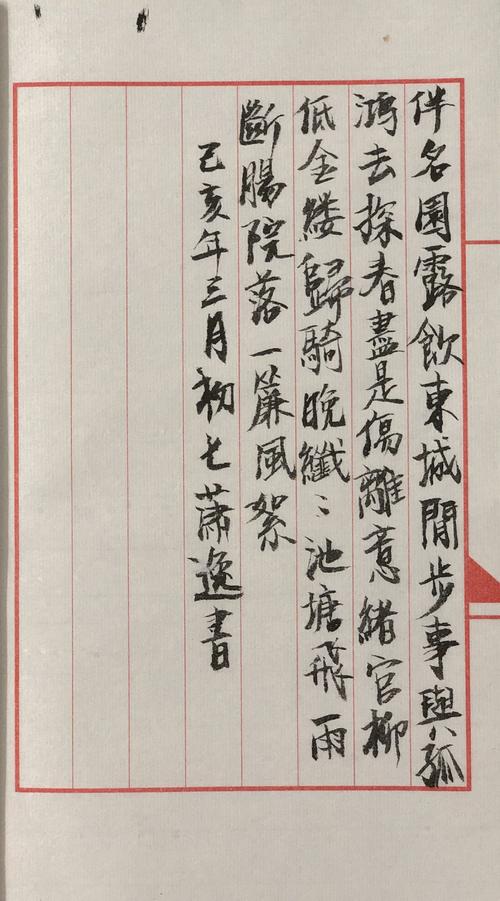 伴名園露飲東城閒步事與孤
鴻去探春盡是傷離意緒官柳
低金縷歸騎晚纖〻池塘飛雨
斷腸院落一簾風絮
己亥年三月初七蕭逸書